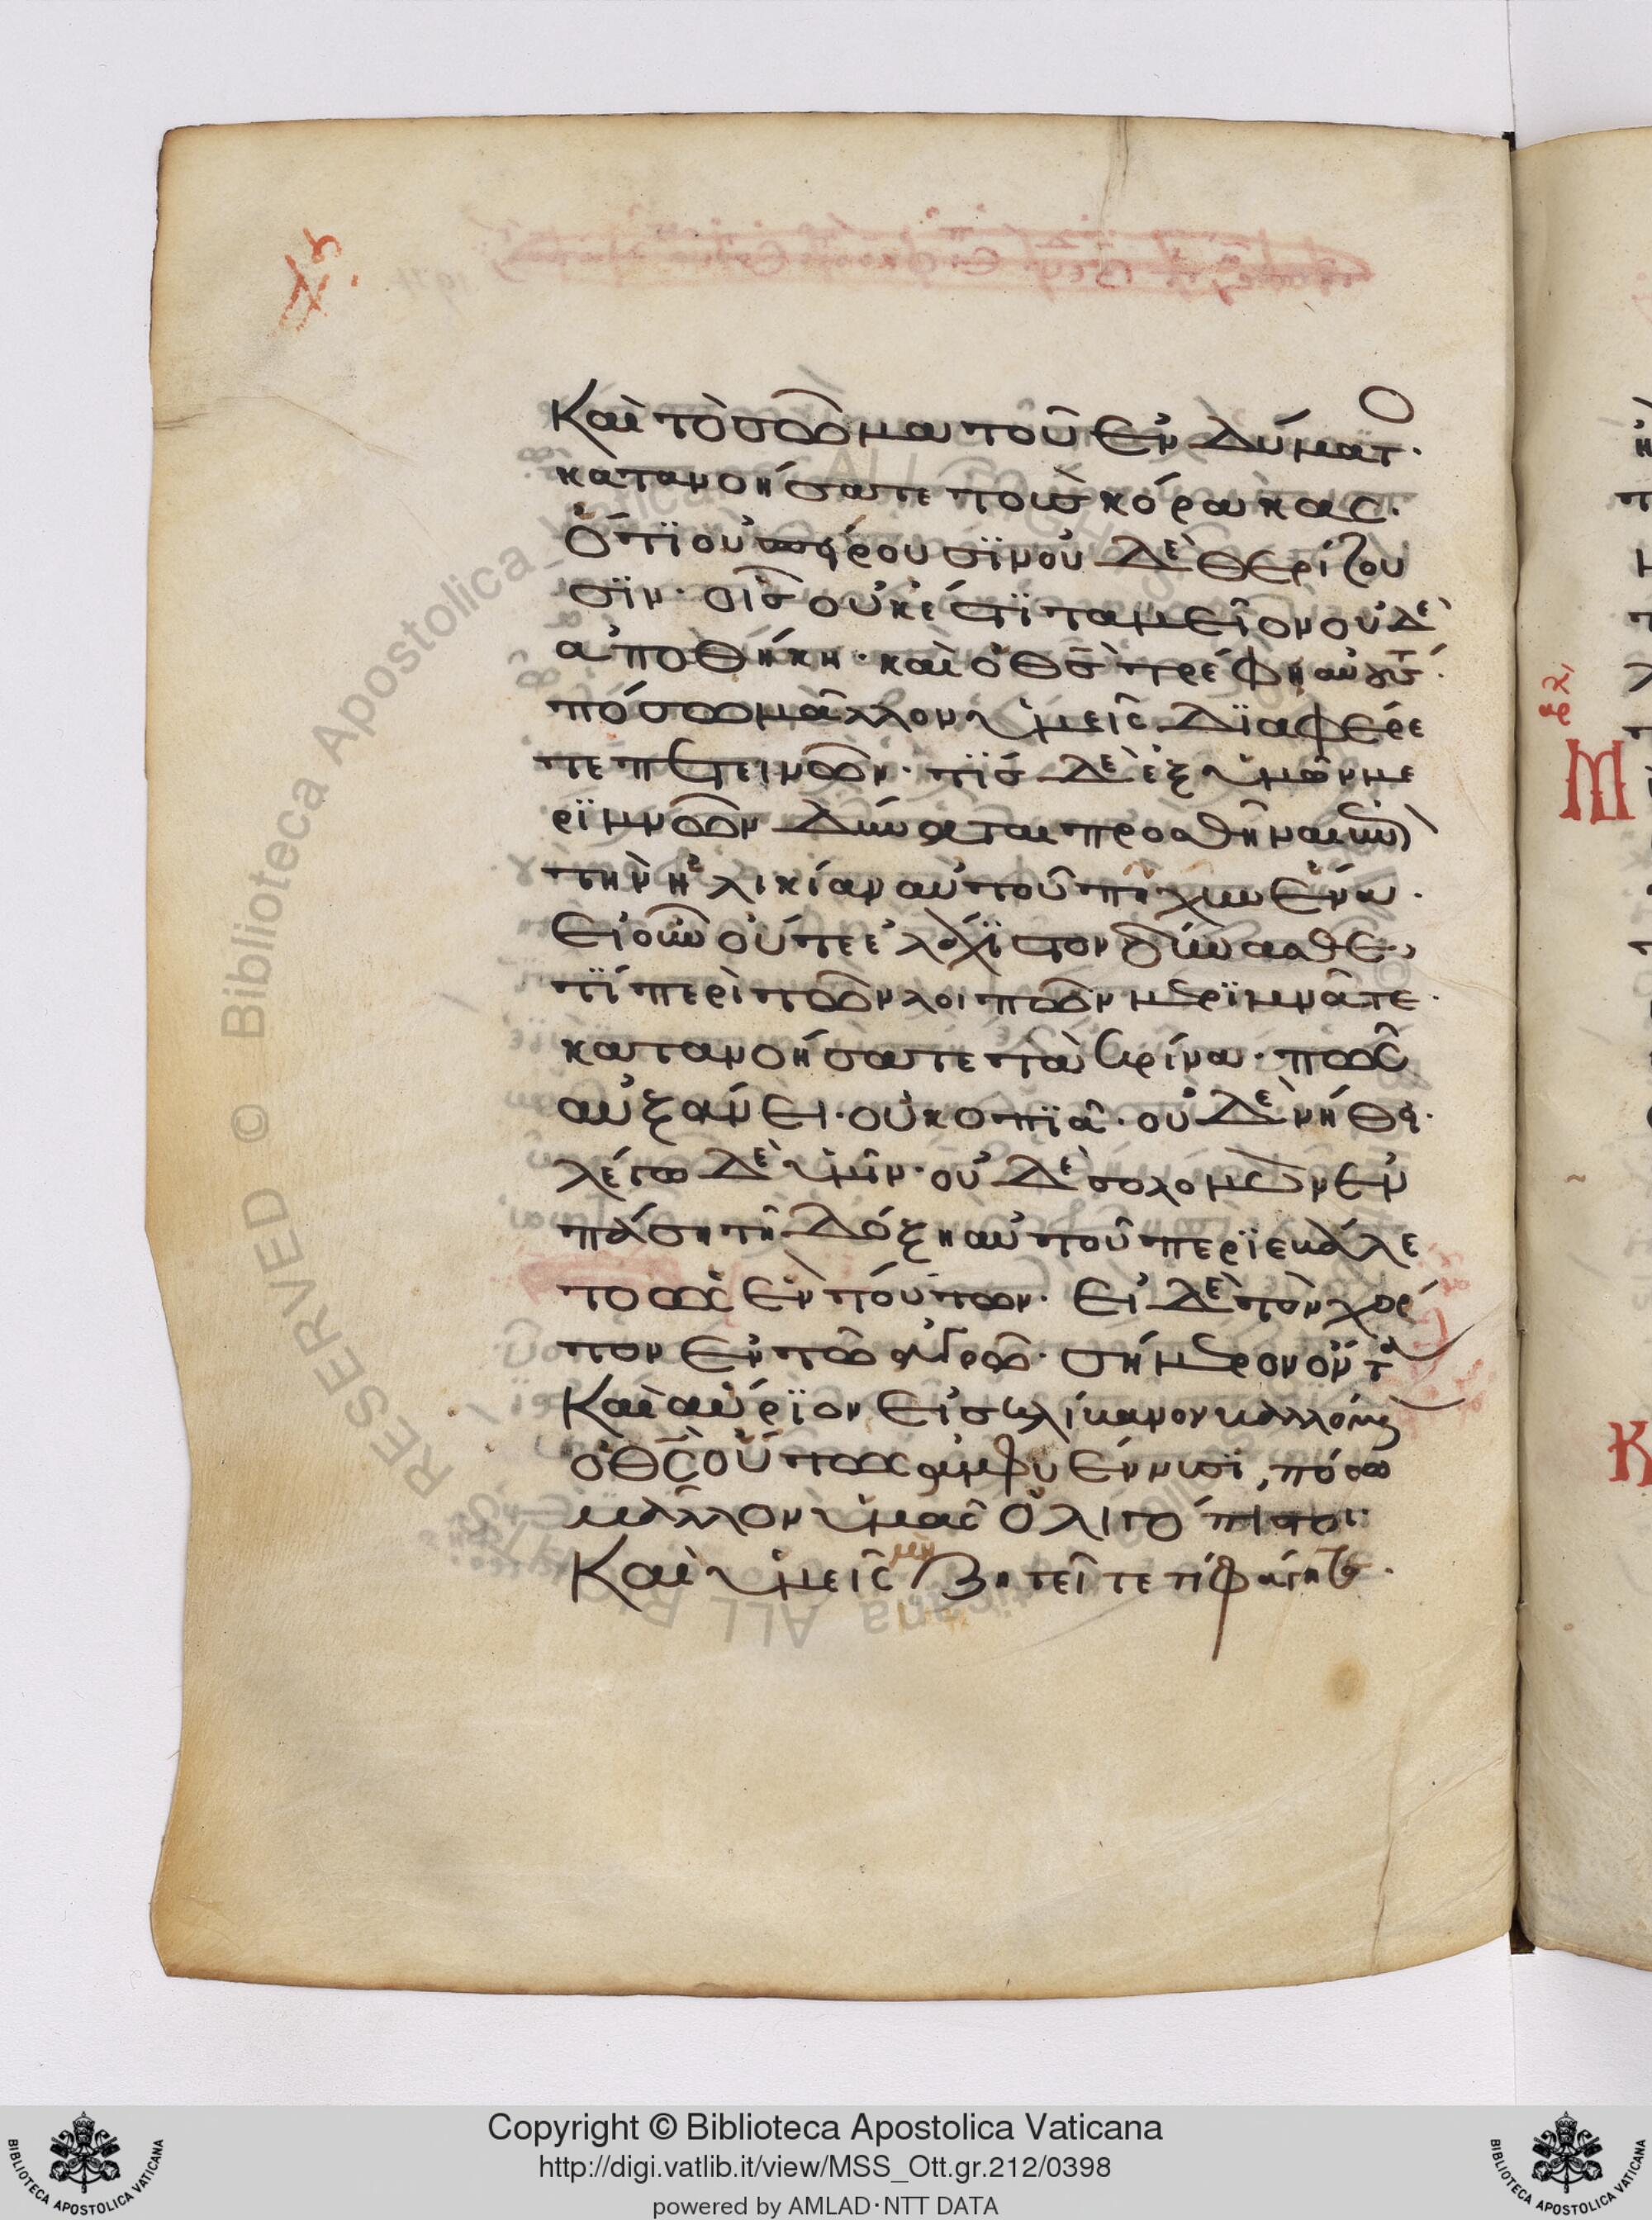 Καὶ τὸ σῶμα τοῦ ἐνδύματ·
κατανοήσατε τοὺς κόρακας·
ὅτι οὐ σπείρουσϊν οὐδὲ θερίζου
σϊν· οἷς οὐκ ἔστϊ ταμεῖον οὐδὲ
ἀποθήκη· καὶ ὁ θς τρέφει αὐτούς·
πόσω μᾶλλον ὑμεῖς δϊαφέρε
τε πετεινῶν· τίς δὲ ἐξ ὑμῶν με
ρϊμνῶν δύναται προσθῆναι ἐπὶ
τὴν ἡλικίαν αὐτοῦ πῆχυν ἕνα·
Εἰ οὖν οὔτε ἐλάχϊστον δύνασθε,
τί περὶ τῶν λοιπῶν μερϊμνᾶτε·
κατανοήσατε τὰ κρίνα· πῶς
αὐξάνει· οὐ κοπϊᾶ· οὐδὲ νήθει·
λέγω δὲ ὑμῖν· οὐδὲ σολομὼν ἐν
πάση τῆ δόξη αὐτοῦ περϊεβάλε
το ὡς ἓν τούτων· Εἰ δὲ τὸν χόρ
τον ἐν τῶ ἀγρῶ· σήμερον ὄντα
Καὶ αὔρϊον εἰς κλίβανον βαλλόμενον
ὁ θς οὕτως ἀμφιέννυσϊ, πόσω
μᾶλλον ὑμᾶς ὀλιγόπιστοι·
Καὶ ὑμεῖς μὴ ζητεῖτε τί φάγητε·
Copyright © Biblioteca Apostolica Vaticana
http://digi.vatlib.it/view/MSS_Ott.gr.212/0398
powered by AMLAD·NTT DATA